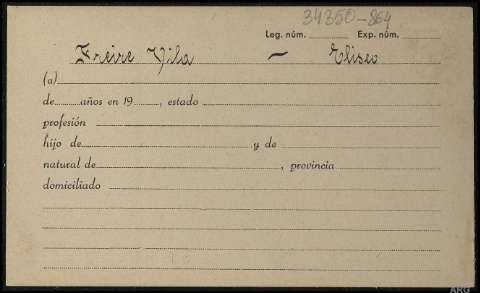 34350-864
Leg. núm. Exp. núm.
Freire Vila — Eliseo
(a)
de años en 19 , estado
profesión
hijo de y de
natural de , provincia
domiciliado
ARG